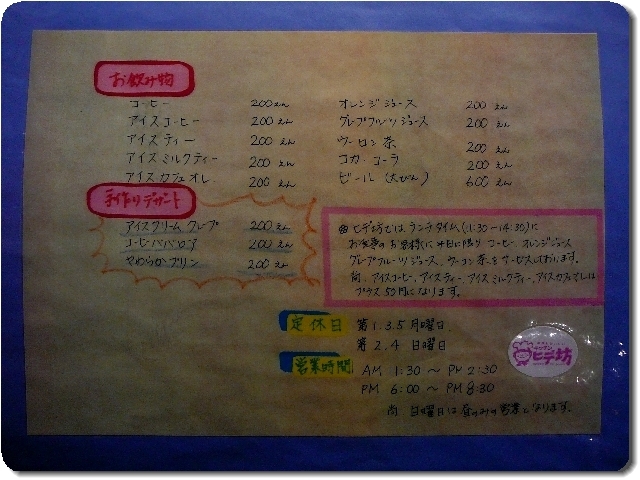 お飲み物
コーヒー 200えん
アイスコーヒー 200えん
アイスティー 200えん
アイスミルクティー 200えん
アイスカフェオレ 200えん
オレンジジュース 200えん
グレープフルーツジュース 200えん
ウーロン茶 200えん
コカ・コーラ 200えん
ビール(大びん) 600えん
手作りデザート
アイスクリームクレープ 200えん
コーヒーババロア 200えん
やわらかプリン 200えん
ヒデ坊では、ランチタイム(11:30〜14:30)に
お食事のお客様に平日に限り コーヒー、オレンジジュース
グレープフルーツジュース、ウーロン茶をサービスしております。
尚、アイスコーヒー、アイスティー、アイスミルクティー、アイスカフェオレは
プラス50円になります。
定休日 第1.3.5月曜日
第2.4 日曜日
営業時間 AM 11:30〜PM 2:30
PM 6:00〜PM 8:30
尚 日曜日は昼のみの営業となります。
ヒデ坊